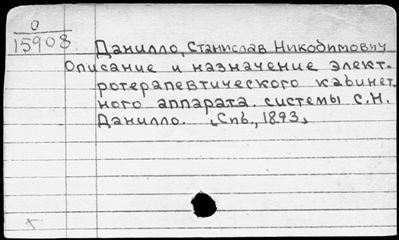 0
15908
Данилло, Станислав Никодимович
Описание и назначение элект-
ротерапевтического кабинет-
ного аппарата системы С.Н.
Данилло. [Спб., 1893]